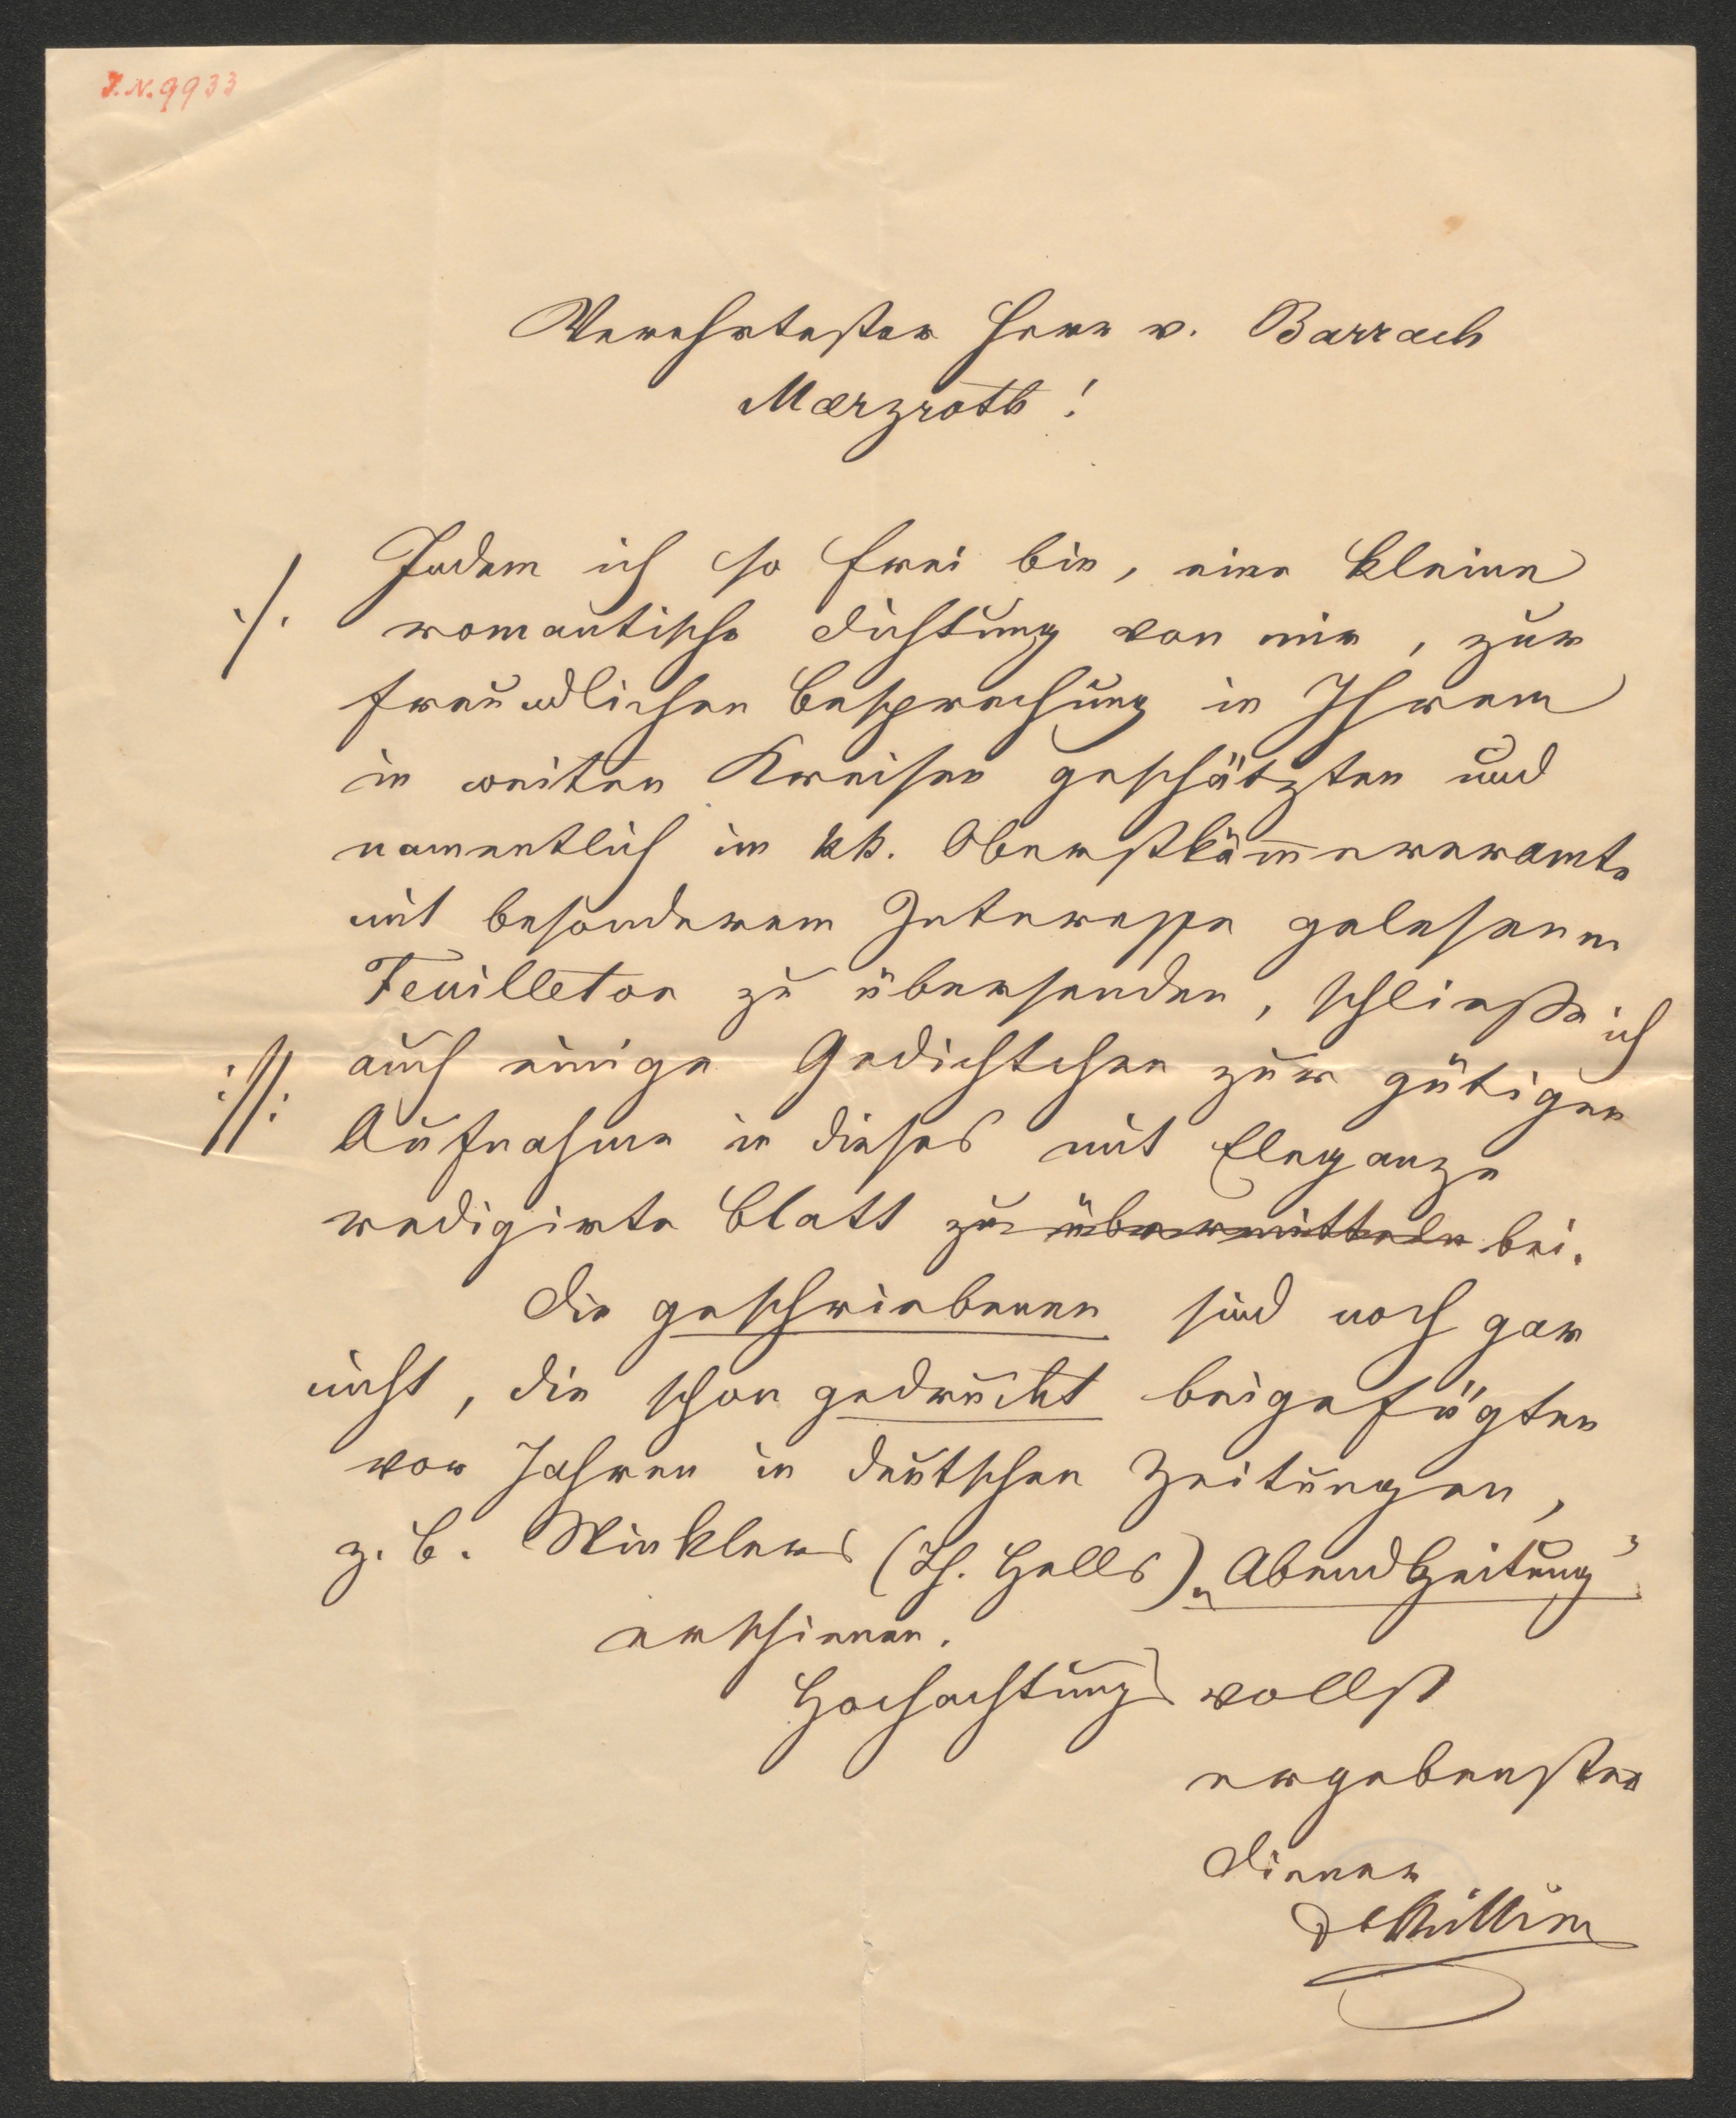 J.N. 9933
Verehrtester Herr v. Barrach
Maerzroth!
Indem ich so frei bin, eine kleine
./. romantische Dichtung von mir, zur
freundlichen Besprechung in Ihrem
in weiten Kreisen geschätzten und
namentlich im kk. Oberstkam̅ereramte
mit besonderem Interesse gelesenen
Feuilleton zu übersenden, schließe ich
:/: auch einige Gedichtchen zur gütigen
Aufnahme in dieses mit Eleganze
redigirte Blatt zu übermitteln bei.
Die geschriebenen sind noch gar
nicht, die schon gedruckt beigefügten
vor Jahren in deutschen Zeitungen,
z. B. Winklers (Th. Hells) „Abendzeitung“
erschienen.
Hochachtungsvollst
ergebenster
Diener